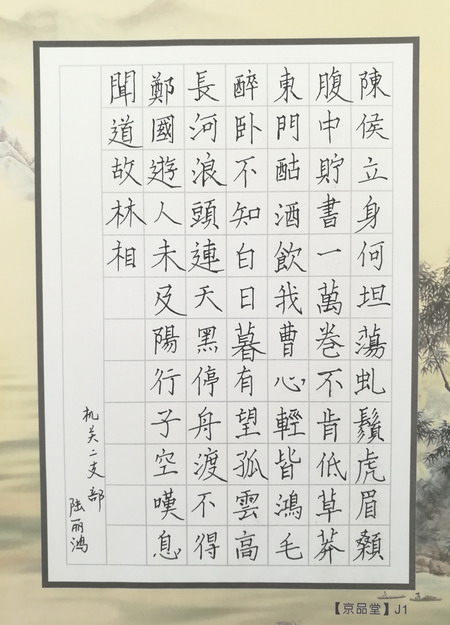 陳侯立身何坦蕩虬鬚虎眉顙
腹中貯書一萬卷不肯低草莽
東門酤酒飲我曹心輕皆鴻毛
醉卧不知白日暮有望孤雲高
長河浪頭連天黑停舟渡不得
鄭國遊人未及陽行子空嘆息
聞道故林相
机关二支部
陆丽鸿
【京品堂】J1